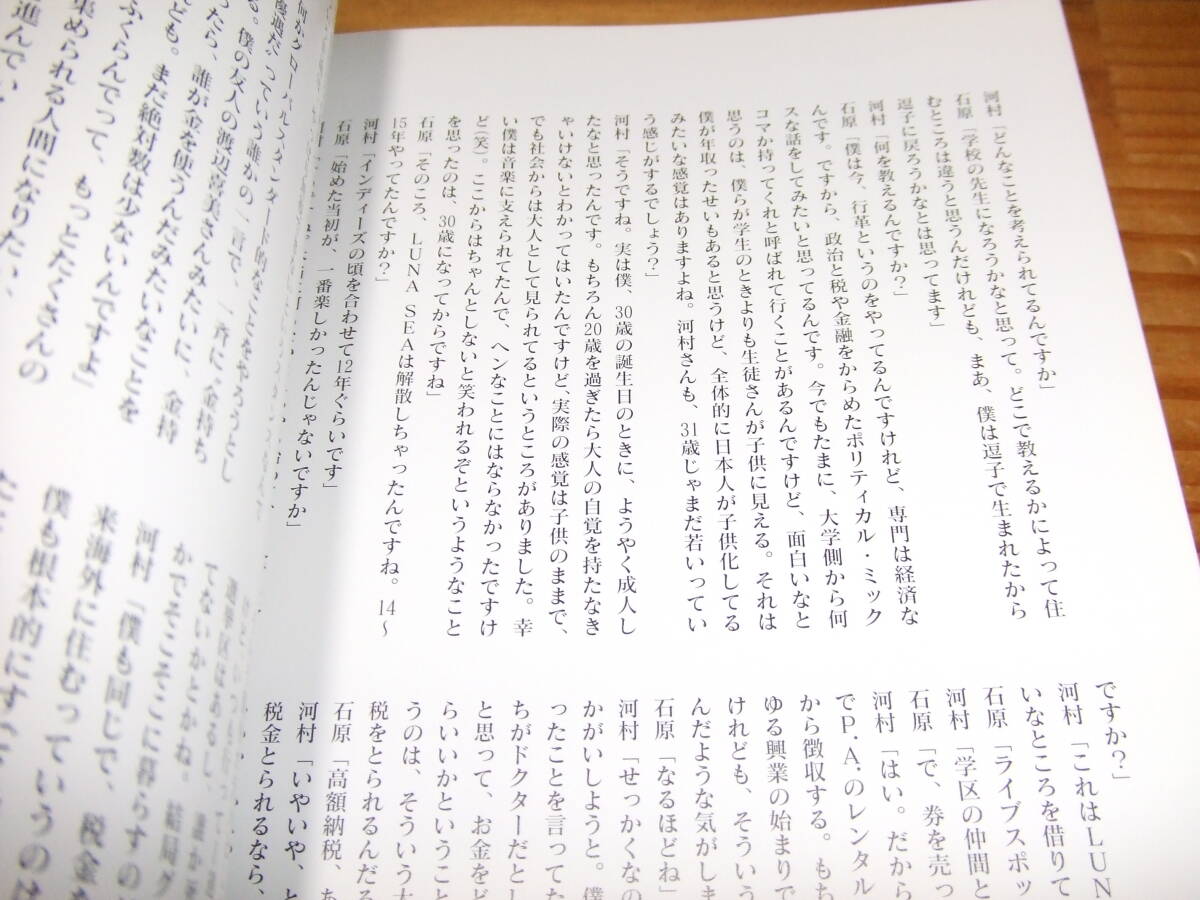 河村「どんなことを考えられてるんですか」
石原「学校の先生になろうかなと思って。どこで教えるかによって住
むところは違うと思うんだけれども、まあ、僕は逗子で生まれたから
逗子に戻ろうかなとは思ってます」
河村「何を教えるんですか？」
石原「僕は今、行革というのをやってるんですけれど、専門は経済な
んです。ですから、政治と税や金融をからめたポリティカル・ミック
スな話をしてみたいと思ってるんです。今でもたまに、大学側から何
コマか持ってくれと呼ばれて行くことがあるんですけど、面白いなと
思うのは、僕らが学生のときよりも生徒さんが子供に見える。それは
僕が年取ったせいもあると思うけど、全体的に日本人が子供化してる
みたいな感覚はありますよね。河村さんも、31歳じゃまだ若いってい
う感じがするでしょう？」
河村「そうですね。実は僕、30歳の誕生日のときに、ようやく成人し
たなと思ったんです。もちろん20歳を過ぎたら大人の自覚を持たなき
ゃいけないとわかってはいたんですけど、実際の感覚は子供のままで、
でも社会からは大人として見られてるというところがありました。幸
い僕は音楽に支えられてたんで、ヘンなことにはならなかったですけ
ど（笑）。ここからはちゃんとしないと笑われるぞというようなこと
を思ったのは、30歳になってからですね」
石原「そのころ、LUNA SEAは解散しちゃったんですね。14〜
15年やってたんですか？」
河村「インディーズの頃を合わせて12年ぐらいです」
石原「始めた当初が、一番楽しかったんじゃないですか」
ですか？」
河村「これはLUN
いなところを借りて
石原「ライブスポッ
河村「学区の仲間と
石原「で、券を売っ
河村「はい。だから
でP.A.のレンタル
から徴収する。もち
ゆる興業の始まりで
けれども、そういう
んだような気がしま
石原「なるほどね」
河村「せっかくなの
かがいしようと。僕
ったことを言ってた
ちがドクターだとし
と思って、お金をど
らいいかということ
うのは、そういう大
税をとられるんだろ
石原「高額納税、あ
河村「いやいや、と
税金とられるなら、
何かグローバルスタンダード的なことをやろうとし
優遇だ〟っていう誰かの一言で、一斉に〝金持ち
る。僕の友人の渡辺喜美さんみたいに、金持
ったら、誰が金を使うんだみたいなことを
ども。まだ絶対数は少ないんですよ」
ふくらんでって、もっとたくさんの
集められる人間になりたい、
進んでい
選挙区はあるし、
てないかとかね。結局グ
かでそこそこに暮らすの
河村「僕も同じで、税金
来海外に住むっていうのは
僕も根本的にす